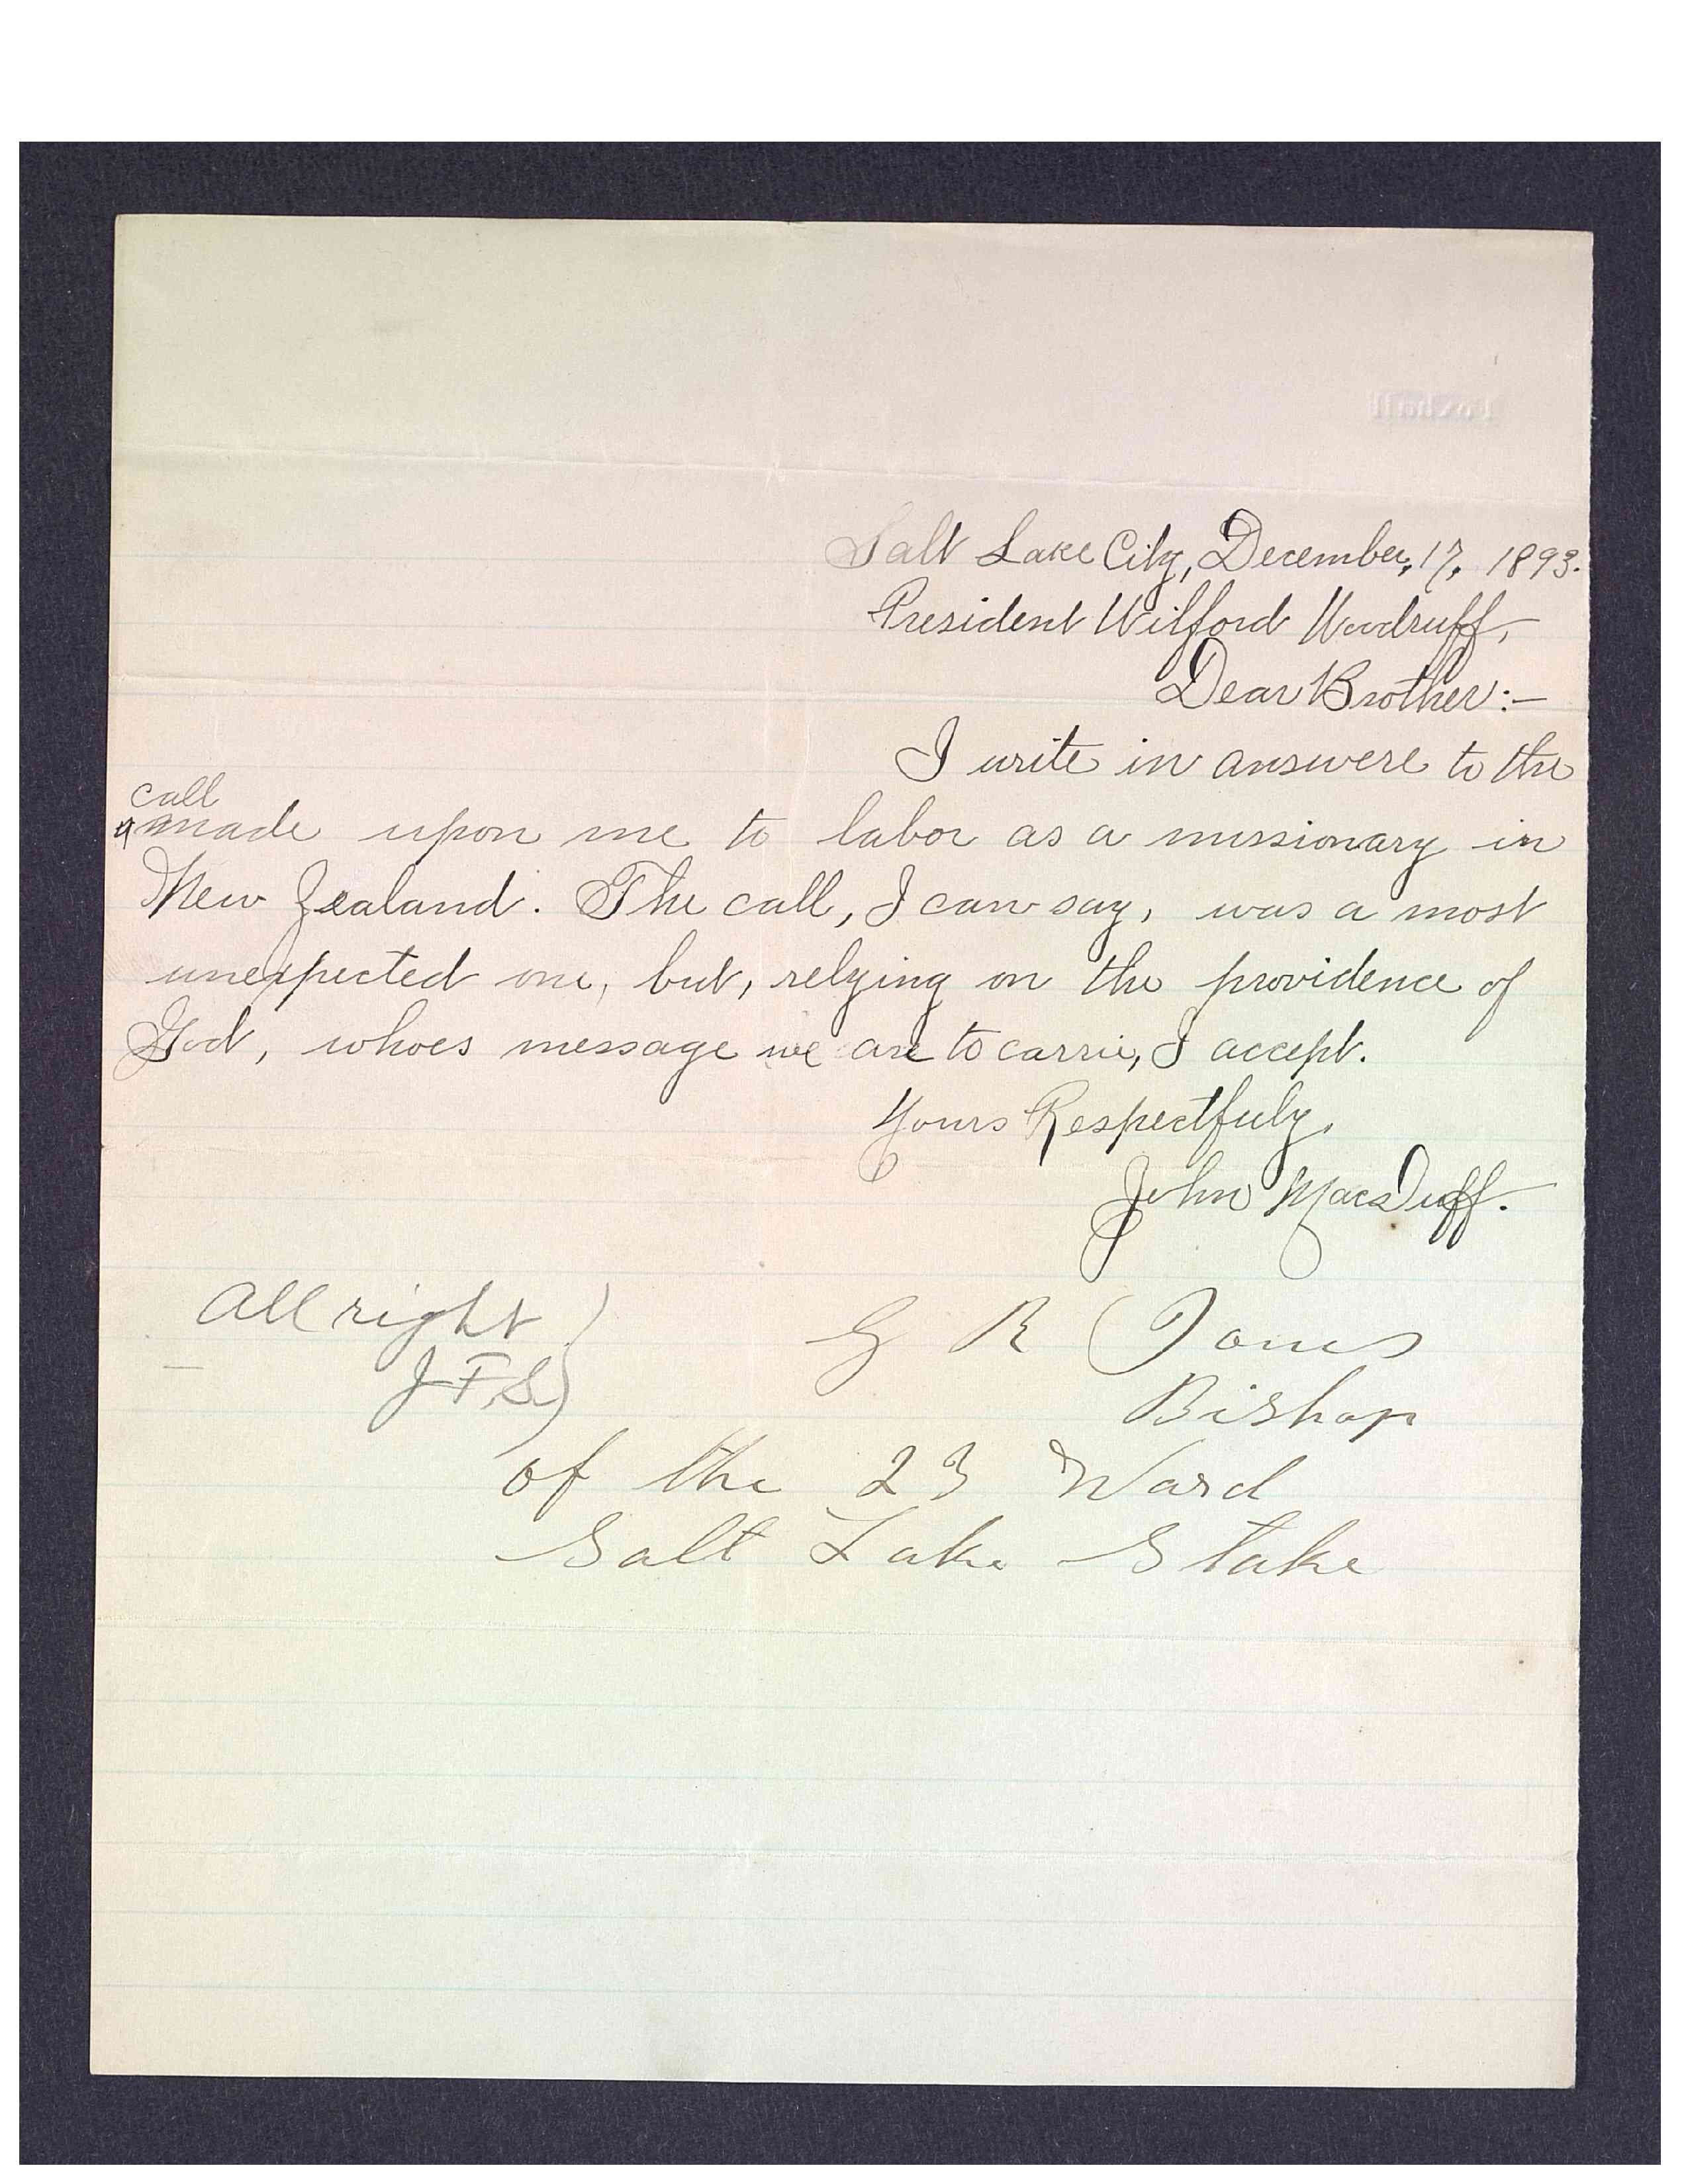 Salt Lake City, December, 17, 1893.
President Wilford Woodruff,
Dear Brother:—
I write in answere to the
call
made upon me to labor as a missionary in
New Zealand. The call, I can say, was a most
unexpected one, but, relying on the providence of
God, whoes message we are to carrie, I accept.
Yours Respectfuly,
John MacDuff.
All right
J. F. S.
G R Jones
Bishop
of the 23 Ward
Salt Lake Stake